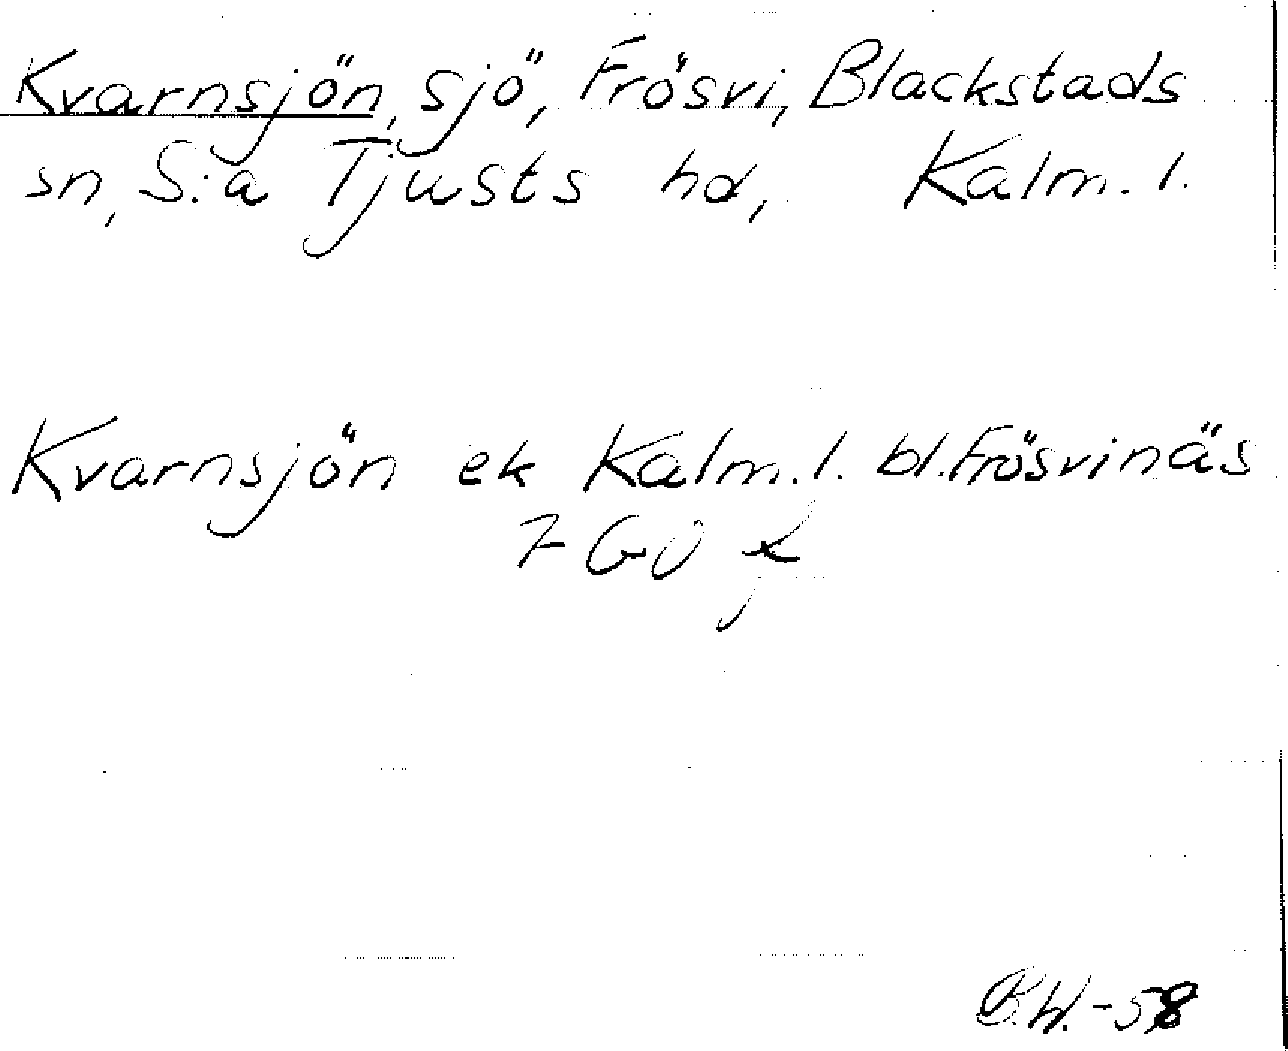 Kvarnsjön, sjö, Frösvi, Blackstads
sn, S:a Tjusts hd, Kalm. l.
Kvarnsjön ek Kalm. l. bl. Frösvinäs
7 GÖ
B.W.-58